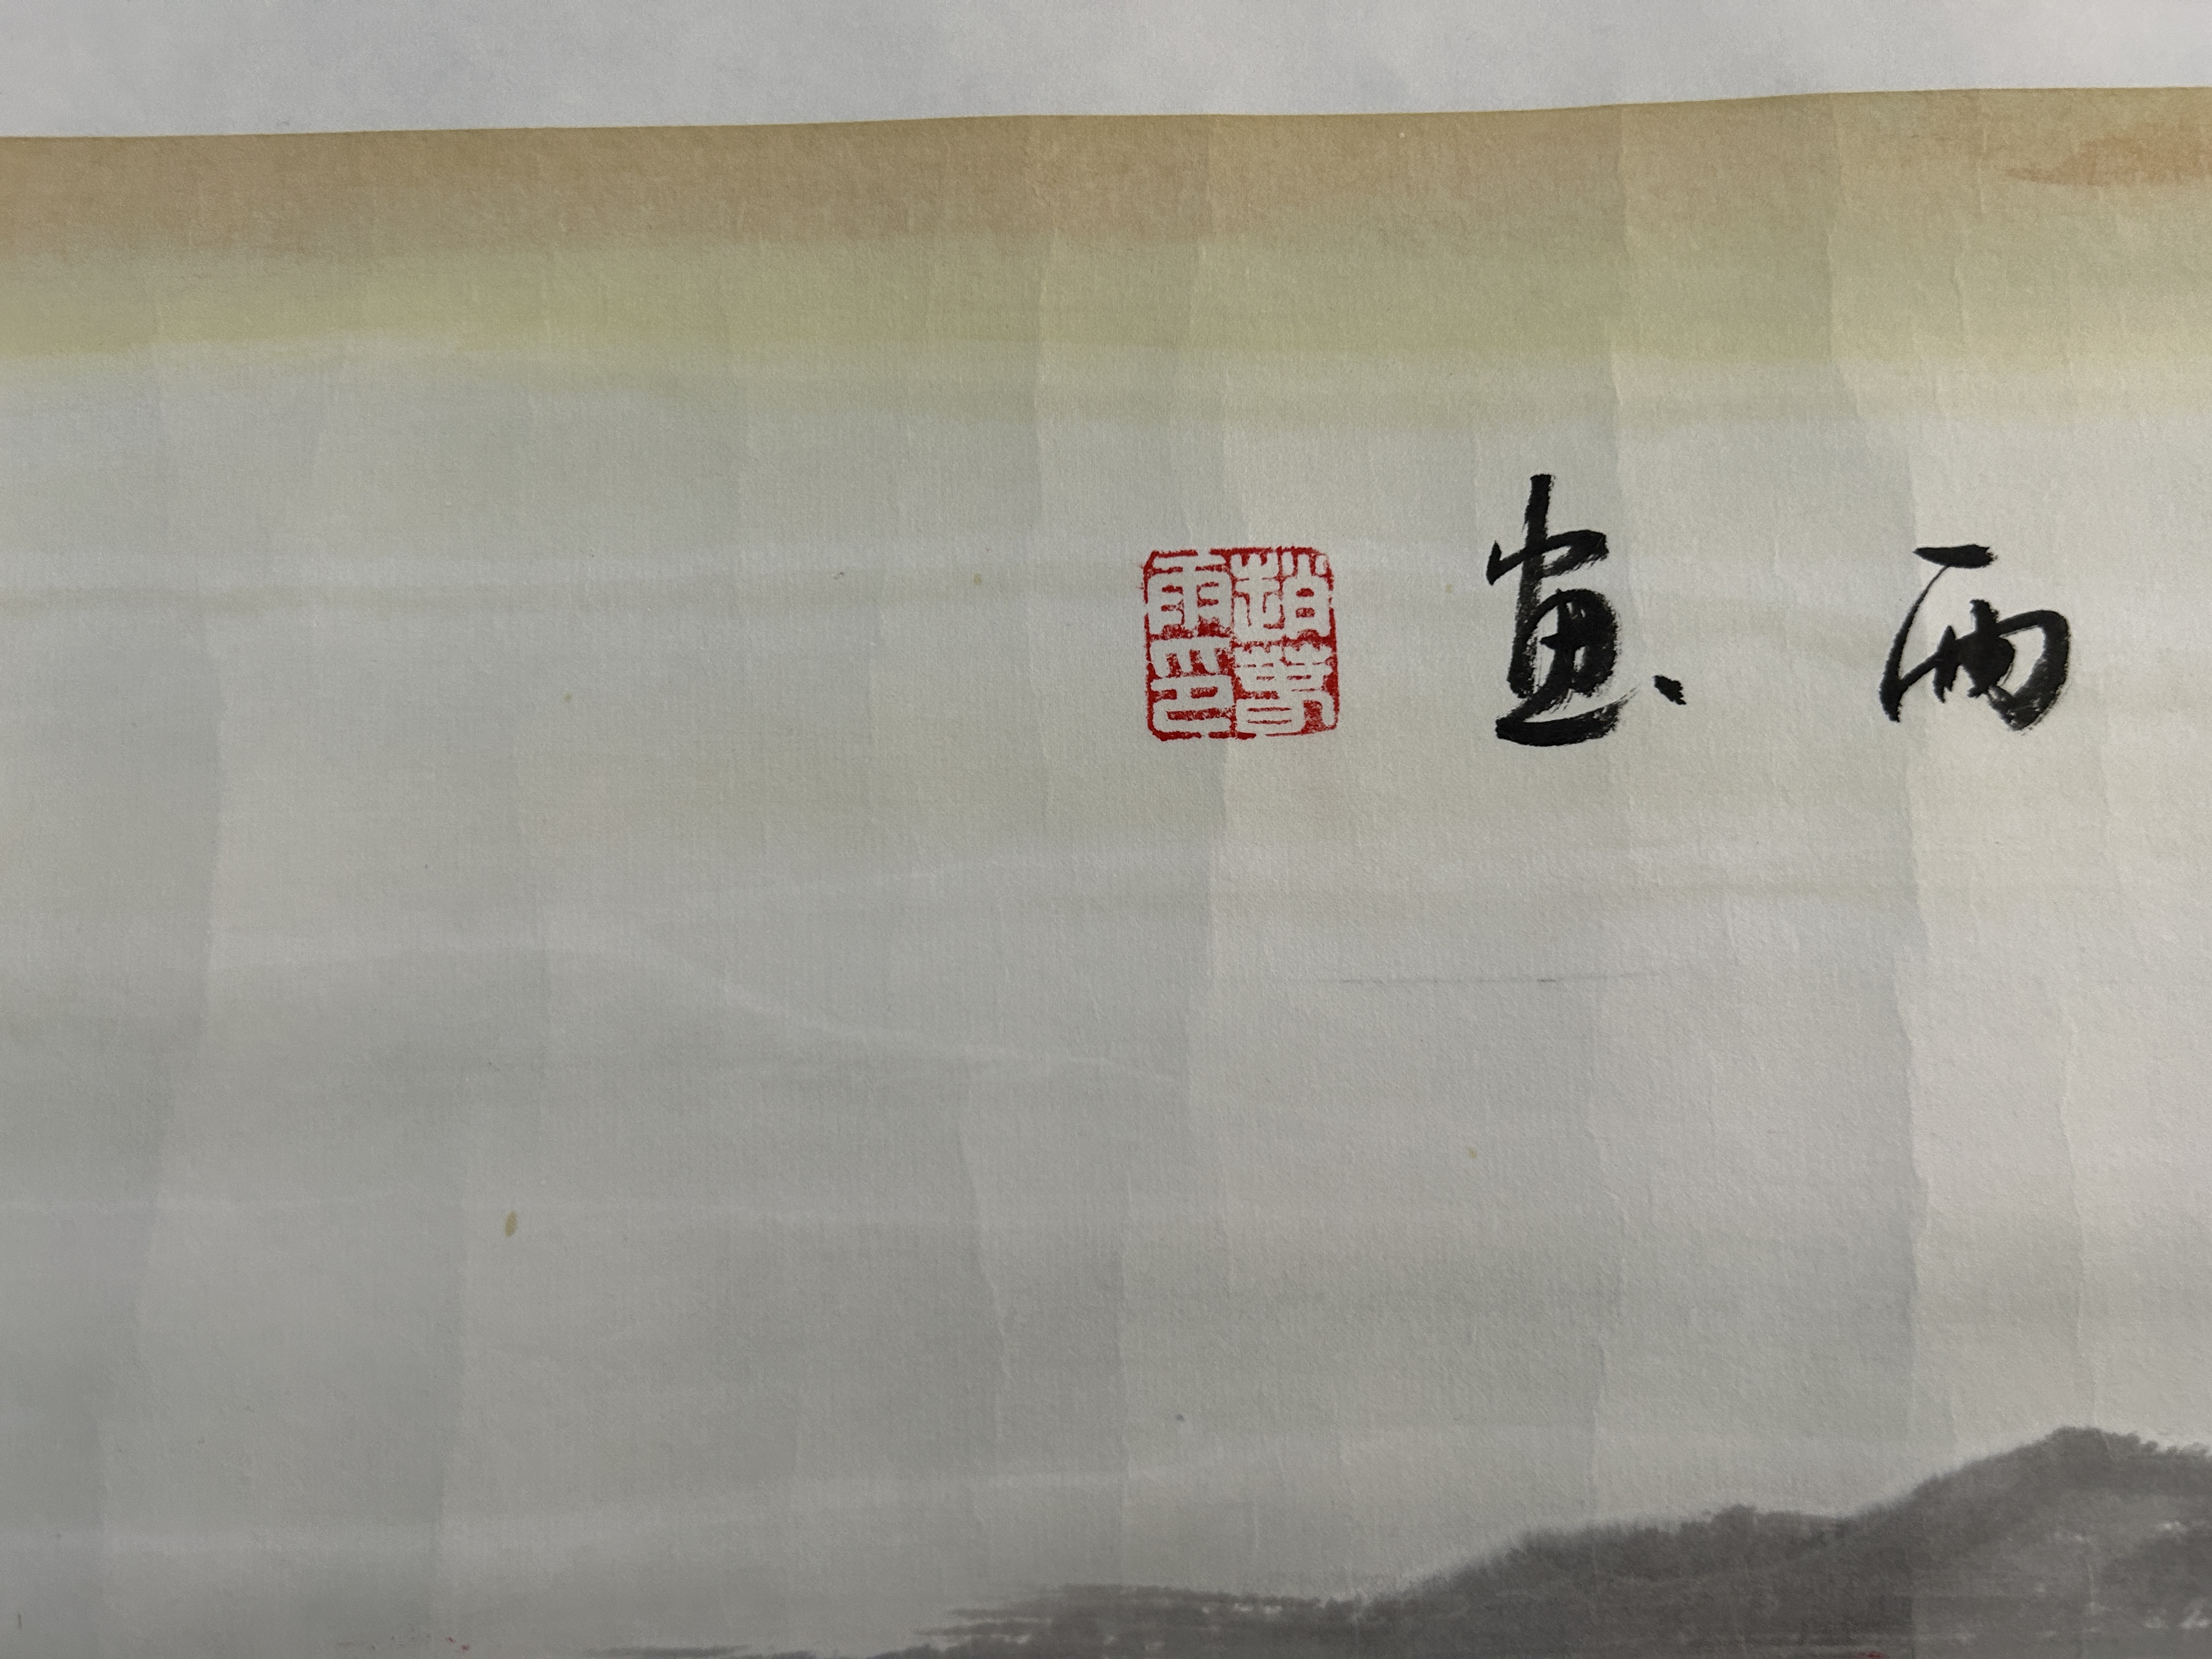 雨畫
趙夢雨印